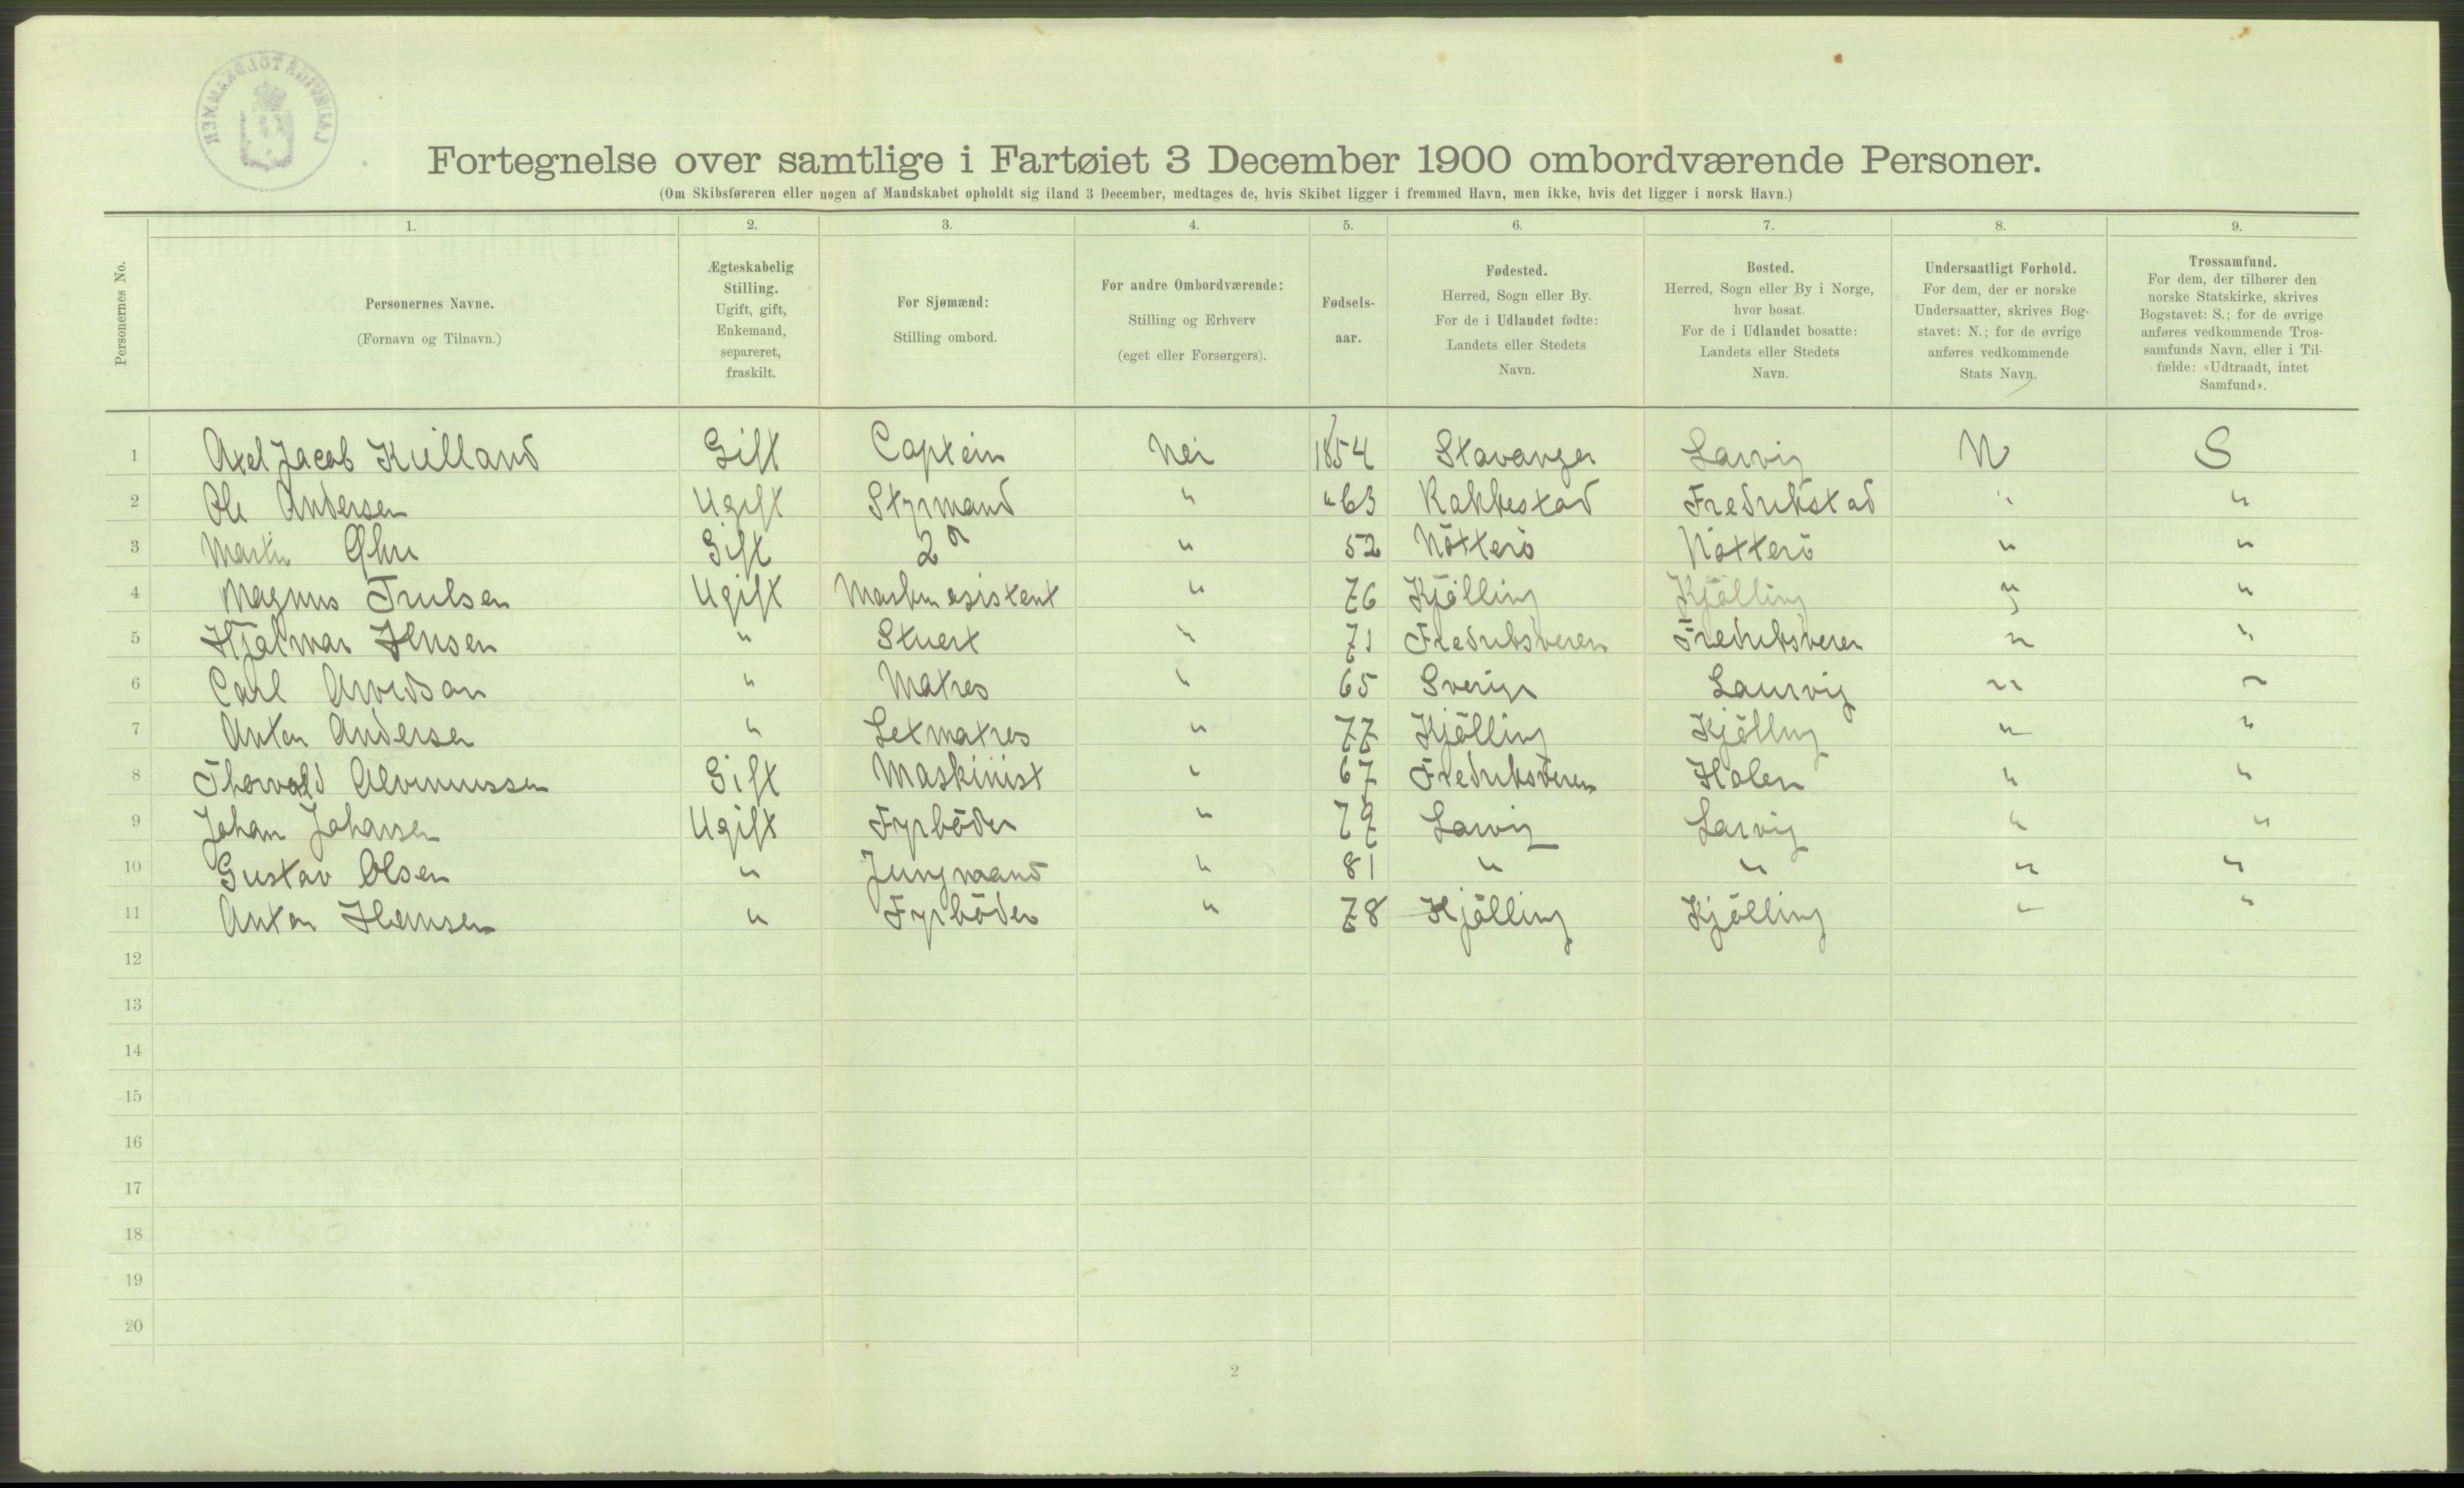 Fortegnelse over samtlige i Fartøiet 3 December 1900 ombordværende Personer.
(Om Skibsføreren eller nogen af Mandskabet opholdt sig iland 3 December, medtages de, hvis Skibet ligger i fremmed Havn, men ikke, hvis det ligger i norsk Havn.)
Personernes No.
1. 2. 3. 4. 5. 6. 7. 8. 9.
Personernes Navne.
(Fornavn og Tilnavn.)
Ægteskabelig
Stilling.
Ugift, gift,
Enkemand,
separeret,
fraskilt.
For Sjømænd:
Stilling ombord.
For andre Ombordværende:
Stilling og Erhverv
(eget eller Forsørgers).
Fødsels-
aar.
Fødested.
Herred, Sogn eller By.
For de i Udlandet fødte:
Landets eller Stedets
Navn.
Bosted.
Herred, Sogn eller By i Norge,
hvor bosat.
For de i Udlandet bosatte:
Landets eller Stedets
Navn.
Undersaatligt Forhold.
For dem, der er norske
Undersaatter, skrives Bog-
stavet: N.; for de øvrige
anføres vedkommende
Stats Navn.
Trossamfund.
For dem, der tilhører den
norske Statskirke, skrives
Bogstavet: S.; for de øvrige
anføres vedkommende Tros-
samfunds Navn, eller i Til-
fælde: «Udtraadt, intet
Samfund».
1 Axel Jacob Kielland Gift Captein Nei 1854 Stavanger Larvig N S
2 Ole Andersen Ugift Styrmand " " 63 Fredrikstad " "
3 Martin Gift 2 " 52 Nötterö Nötterö " "
4 Magnus Trulsen Ugift " 76 Kjölling Kjölling " "
5 Hjalmar Jensen " Stuert " 71 Fredriksværn Fredriksværn " "
6 Carl Arvidson " Matros " 65 Sverige Laurvig " "
7 Anton Andersen " Letmatros " 77 Kjölling Kjölling " "
8 Thorvald Gift Maskinist " 67 Fredriksværn " "
9 Johan Johansen Ugift Fyrböder " Larvig Larvig " "
10 Gustav Olsen " Jungmand " 81 " " " "
11 Anton Hansen " Fyrböder " 78 Kjölling Kjölling " "
12
13
14
15
16
17
18
19
20
2